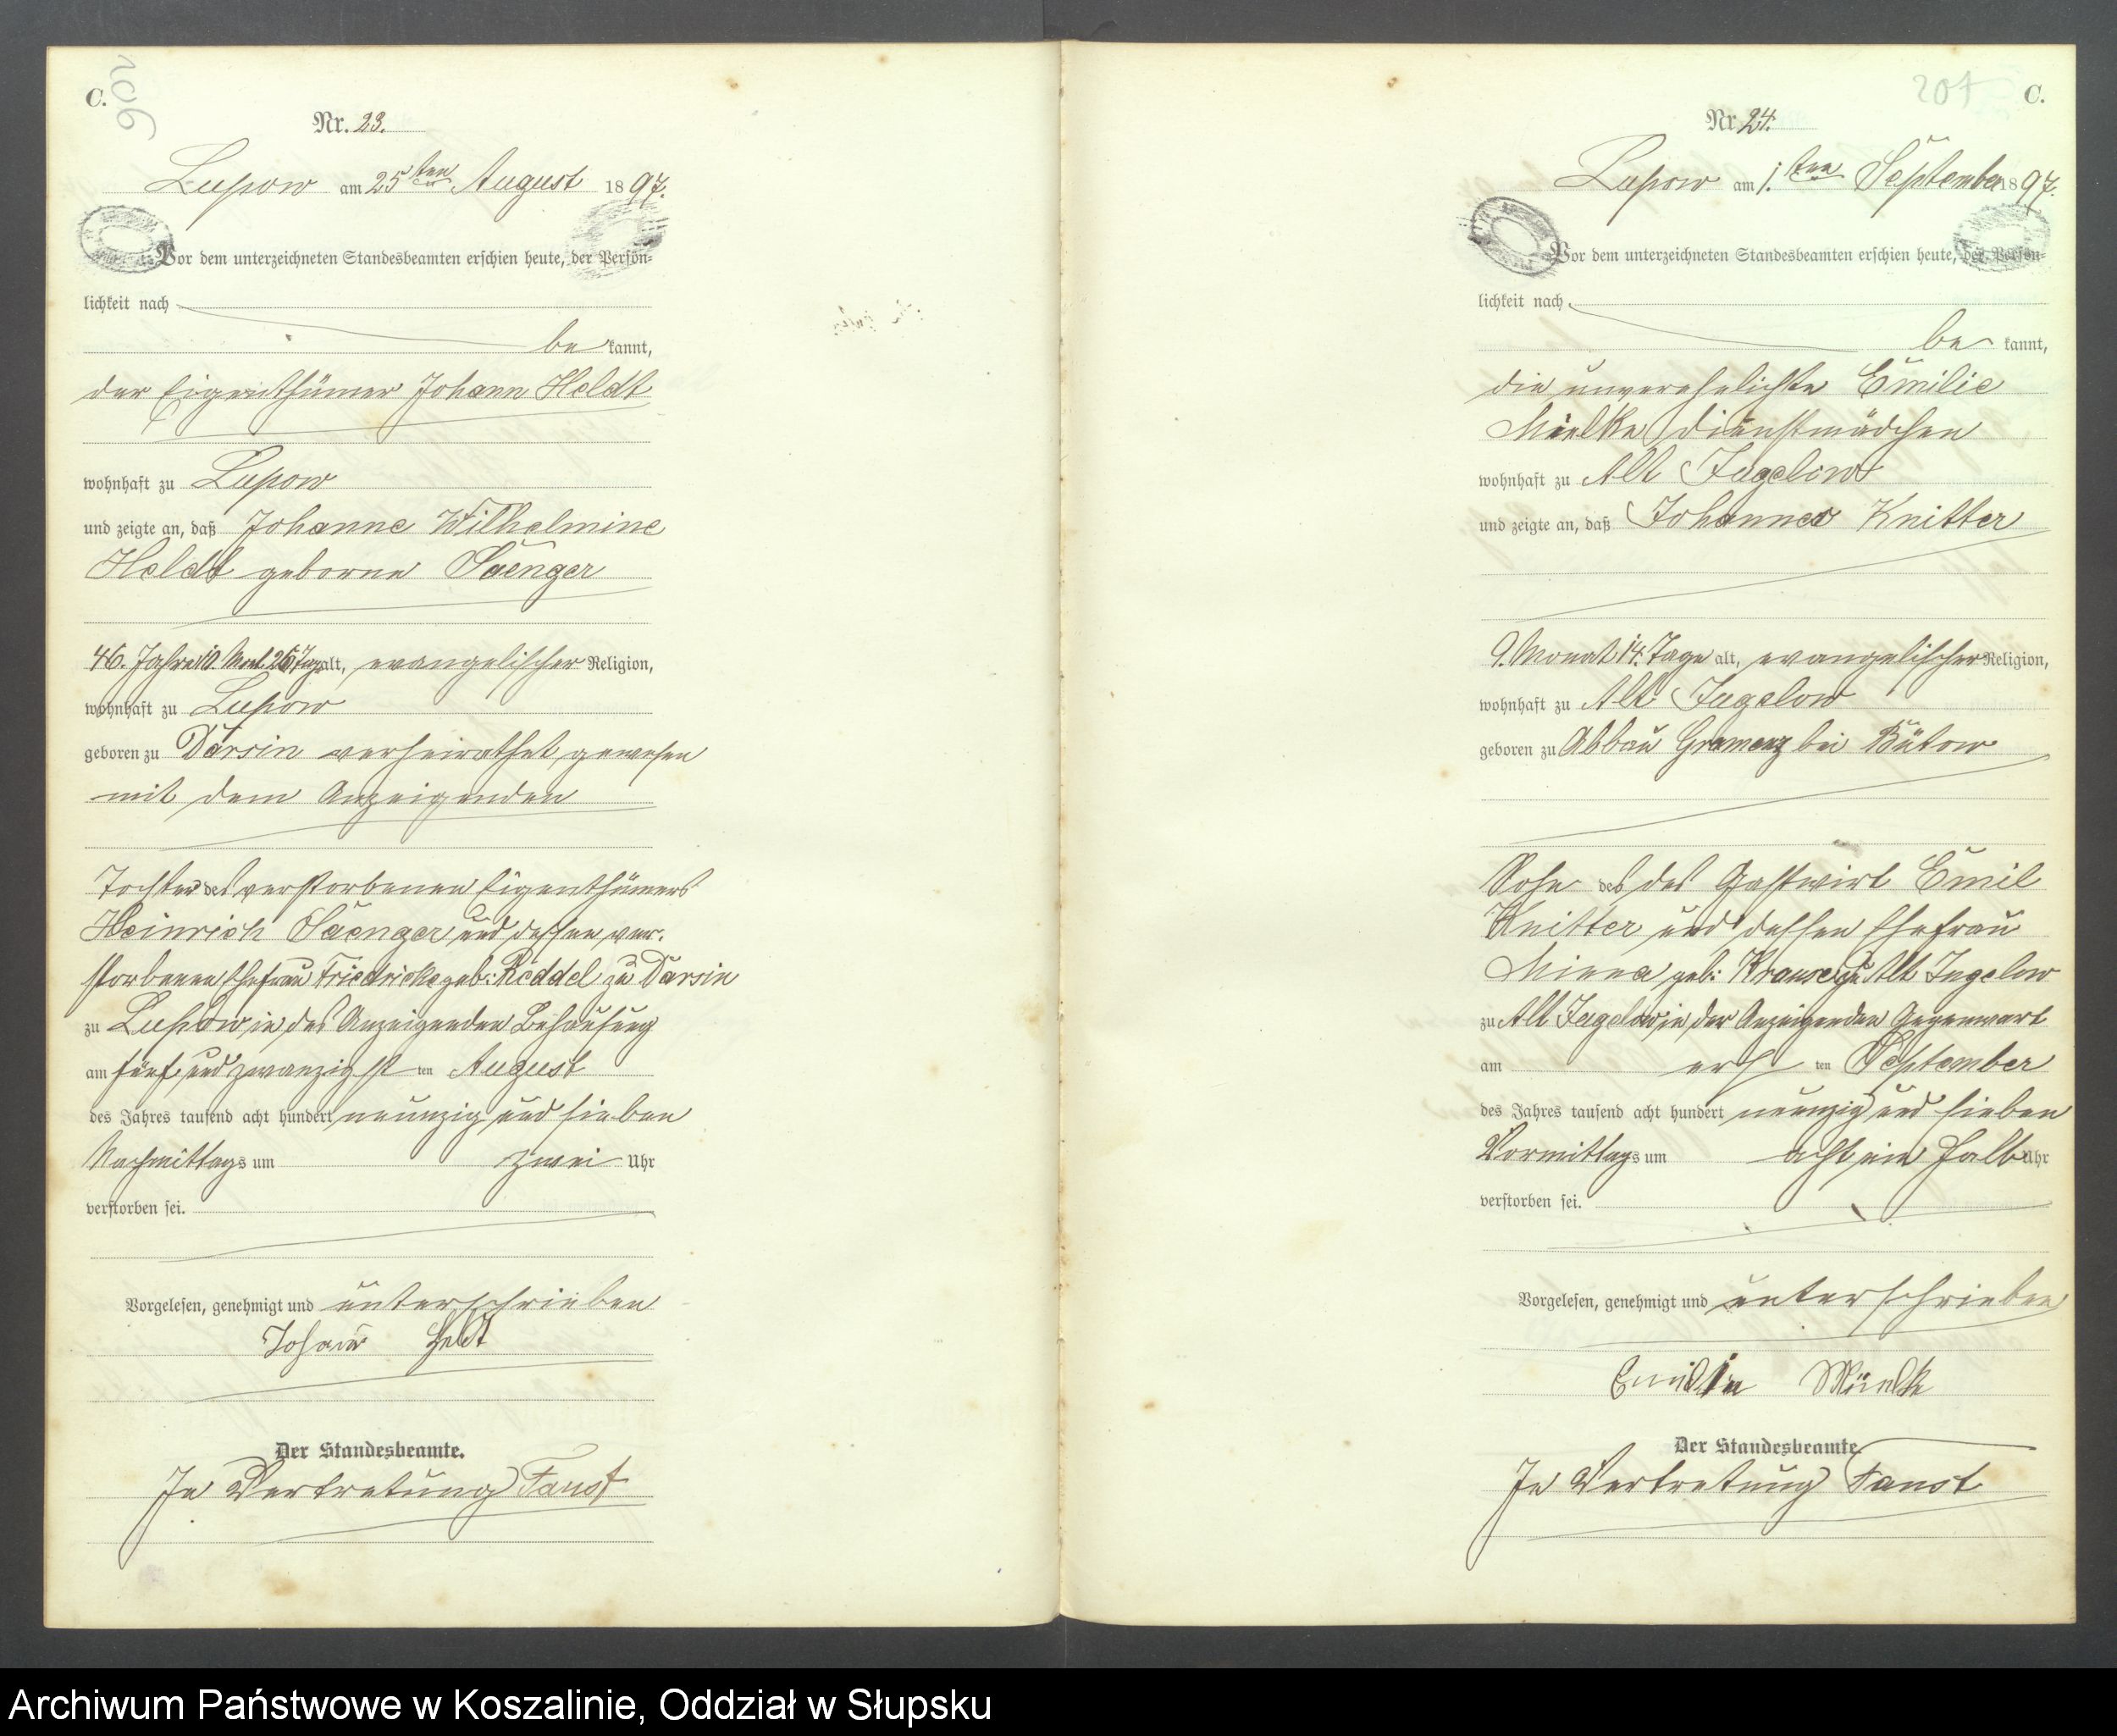 C.
206
Nr. 23.
Lupow am 25ten August 1897.
Vor dem unterzeichneten Standesbeamten erschien heute, der Persön-
lichkeit nach
be kannt,
der Eigenthümer Johann Heldt
wohnhaft zu Lupow
und zeigte an, daß Johanne Wilhelmine
Heldt geborne Saenger
46. Jahre 10 Mont 26 Tage alt, evangelischer Religion,
wohnhaft zu Lupow
geboren zu Darsin verheirathet gewesen
mit dem Anzeigenden
Tochter des verstorbenen Eigenthümers
Heinrich Saenger und dessen ver-
storbenen Ehefrau Friedricke geb: Reddel zu Darsin
zu Lupow in des Anzeigenden Behausung
am fünf und zwanzigst ten August
des Jahres tausend acht hundert neunzig und sieben
Nachmittags um zwei Uhr
verstorben sei.
Vorgelesen, genehmigt und unterschrieben
Johann Heldt
Der Standesbeamte.
In Vertretung Faust
207
C.
Nr 24.
Lupow am 1.ten September 1897.
Vor dem unterzeichneten Standesbeamten erschien heute, der Persön-
lichkeit nach
be kannt,
die unverehelichte Emilie
Mielke Dienstmädchen
wohnhaft zu Alt Jugelow
und zeigte an, daß Johannes Knitter
9. Monat 14. Tage alt, evangelischer Religion,
wohnhaft zu Alt Jugelow
geboren zu Abbau Gramenz bei Bütow
Sohn des des Gastwirt Emil
Knitter und dessen Ehefrau
Minna geb: Krause zu Alt Jugelow
zu Alt Jugelow in der Anzeigenden Gegenwart
am erst ten September
des Jahres tausend acht hundert neunzig und sieben
Vormittags um acht ein halb Uhr
verstorben sei.
Vorgelesen, genehmigt und unterschrieben
Emilie Mielke
Der Standesbeamte.
In Vertretung Faust
Archiwum Państwowe w Koszalinie, Oddział w Słupsku